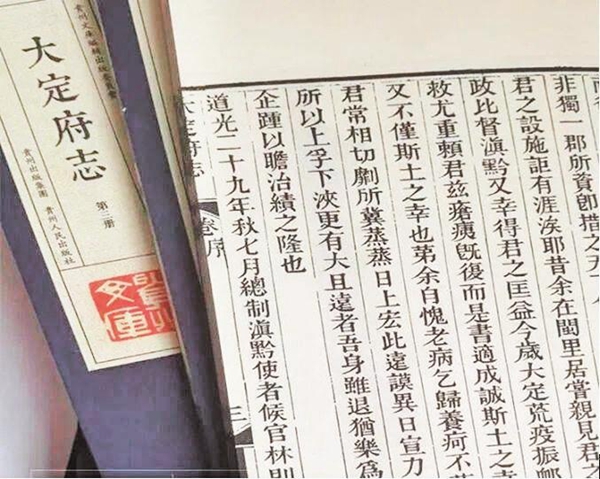 非獨一郡所資卽措之
君之設施詎有涯涘耶昔余在閩里居嘗親見君之
政比督滇黔又幸得君之匡益今歲大定荒疫振䘏
救尤重賴君茲瘡痍旣復而是書適成誠斯土之幸
又不僅斯土之幸也第余自愧老病乞歸養疴不
君常相切劘所冀蒸蒸日上宏此遠謨異日宣力
所以上孚下浹更有大且遠者吾身雖退猶樂爲
企踵以瞻治績之隆也
道光二十九年秋七月總制滇黔使者候官林則
大定府志 卷序 三
大定府志
第三册
貴州出版集團 貴州人民出版社
貴州文庫